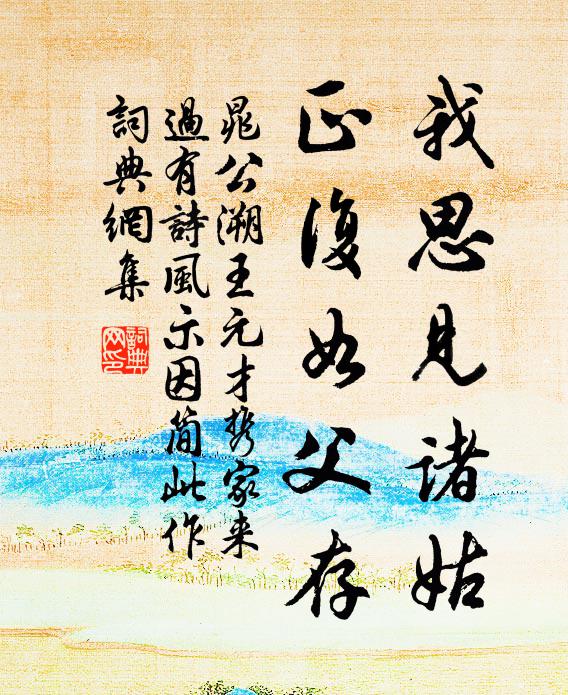 我思見諸姑
正復如父存
晁公溯王元才携家来
過有詩風示因简此作
詞典網集
詞典网印